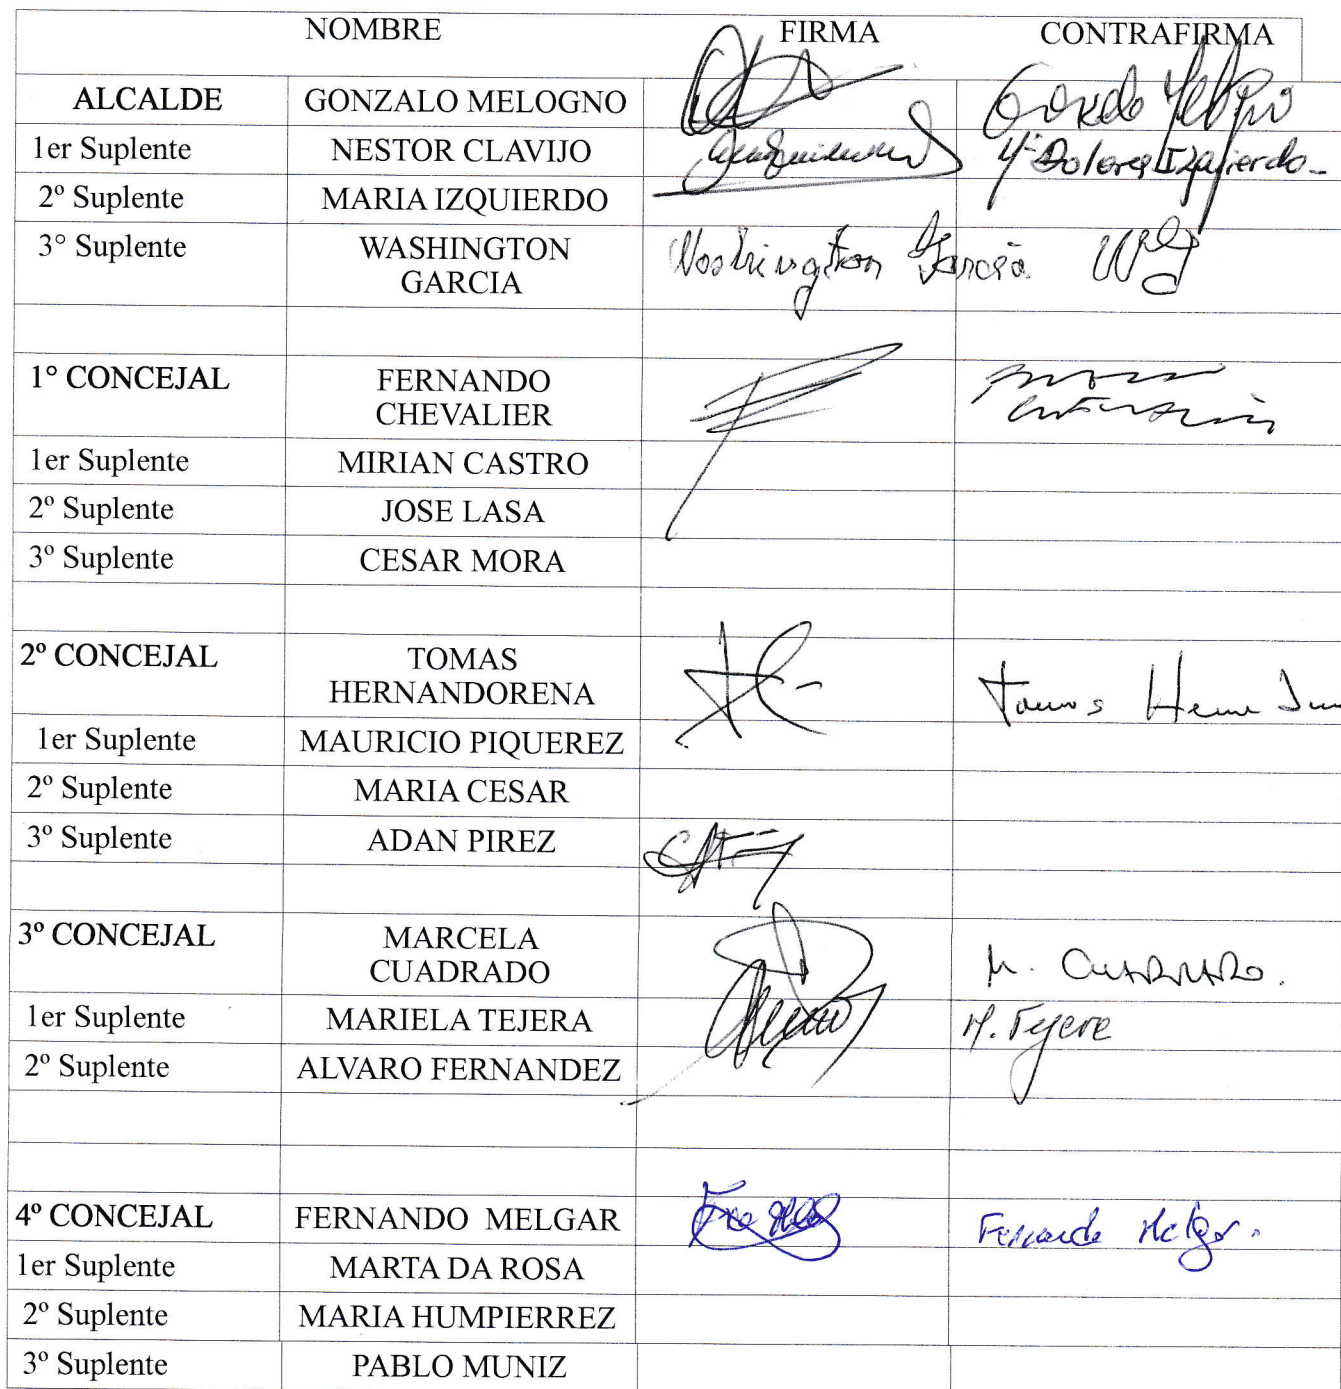 NOMBRE FIRMA CONTRAFIRMA
ALCALDE GONZALO MELOGNO
1er Suplente NESTOR CLAVIJO Mª Dolores Izquierdo.-
2º Suplente MARIA IZQUIERDO
3° Suplente WASHINGTON Washington Garcia
GARCIA
1° CONCEJAL FERNANDO
CHEVALIER
1er Suplente MIRIAN CASTRO
2º Suplente JOSE LASA
3º Suplente CESAR MORA
2º CONCEJAL TOMAS
HERNANDORENA Tomas
1er Suplente MAURICIO PIQUEREZ
2º Suplente MARIA CESAR
3º Suplente ADAN PIREZ
3º CONCEJAL MARCELA
CUADRADO M. CUADRADO.
1er Suplente MARIELA TEJERA M. Tejera
2º Suplente ALVARO FERNANDEZ
4º CONCEJAL FERNANDO MELGAR Fernando Melgar.
1er Suplente MARTA DA ROSA
2º Suplente MARIA HUMPIERREZ
3º Suplente PABLO MUNIZ